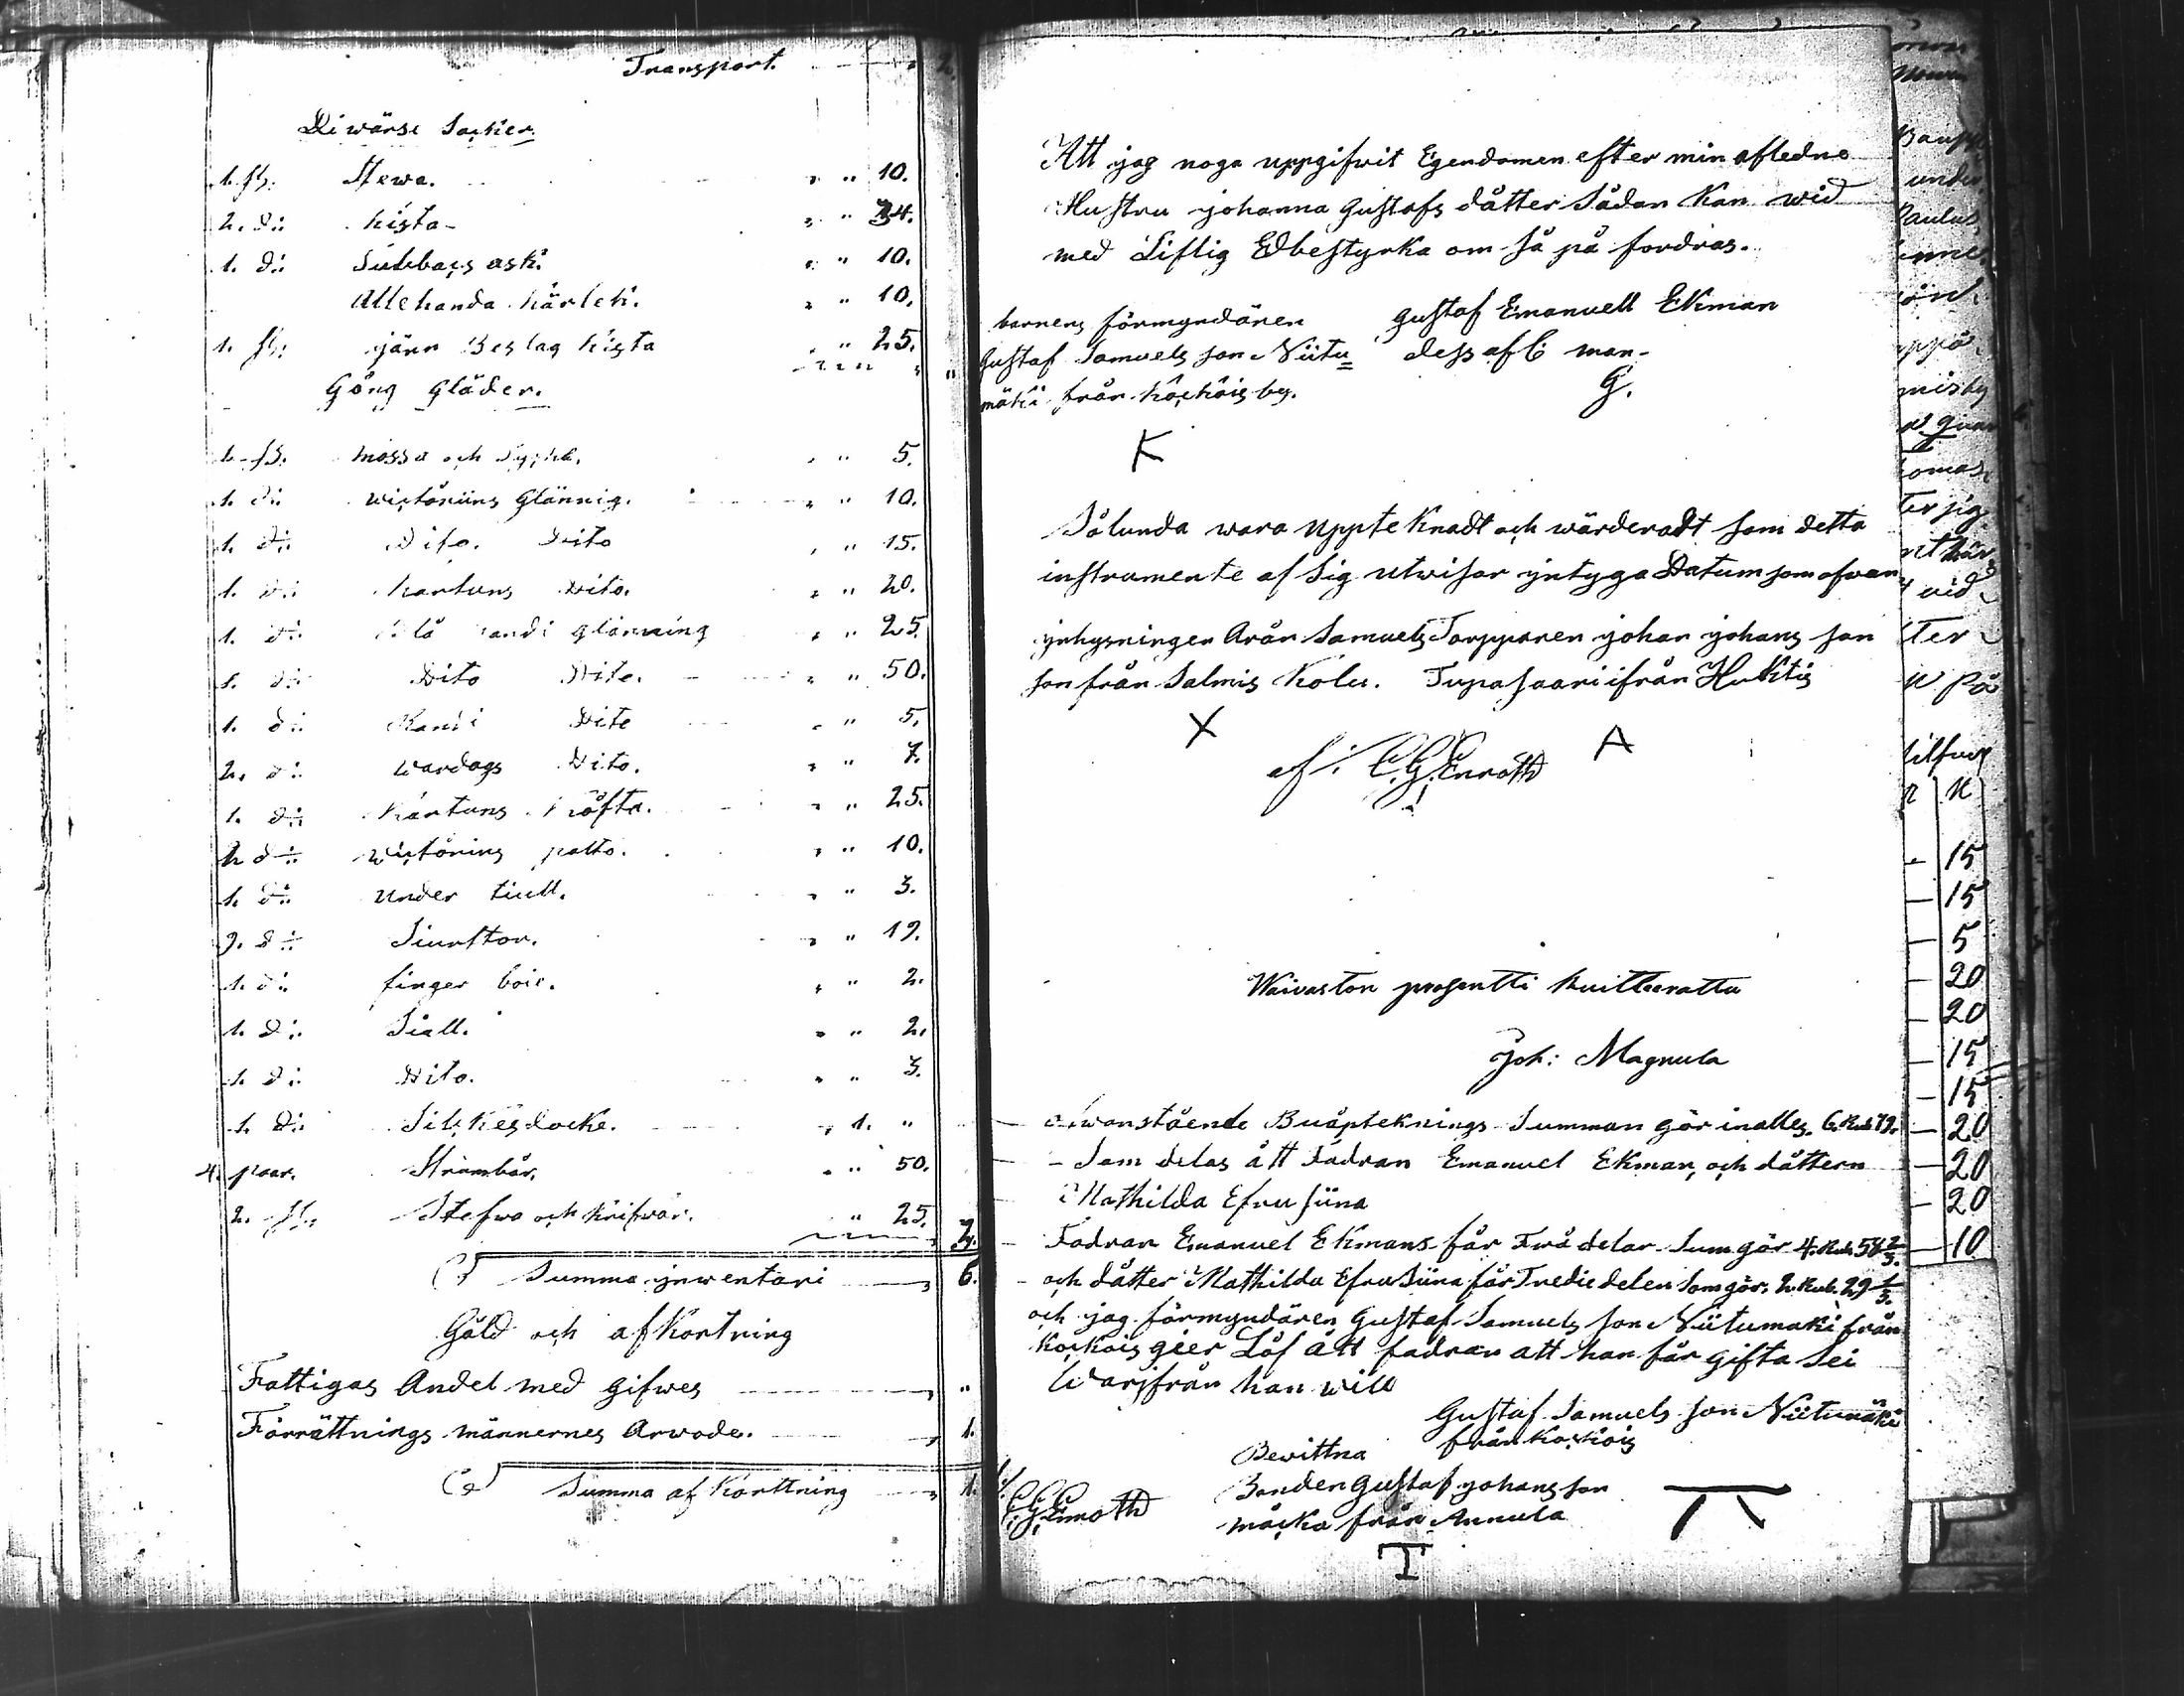 Transport. 2.
Diwärse Saker.
1. st. Stewa. " " 10.
2. d:o Kista " " 34.
1. d:o " " 10.
Allehanda KärleK. " " 10.
1. st. järn Beslag Kista " " 25.
Gång Gläder.
1. st. mössa och " " 5.
1. d:o Glännig. " " 10.
1. d:o Dito. Dito " " 15.
1. d:o Kartuns Dito. " " 20.
1. d:o glänning " " 25.
1. d:o Dito Dito. " " 50.
1. d:o Randi Dito " " 5.
2. d:o wardags Dito. " " 7.
1. d:o Kartuns Köfta. " " 25.
2 d:o patto. " " 10.
1. d:o under tiull. " " 3.
9. d:o Siurttor. " " 19.
1. d:o finger boir. " " 2.
1. d:o Siall. " " 2.
1. d:o Dito. " " 3.
1. d:o Silkesdocke. " 1. "
4. paar. Strumbår. " " 50.
2. st. Stefwo och Krifwor. " 25.
Summa ynwentari 6.
Gäld och afKortning
Fattigas Andel med gifwes "
Förrättnings männernes Arwode. 1.
Summa af Korttning 1.
Att jag noga uppgifwit Egendomen efter min afledne
Hustru johanna Gustafs dåtter Sådan Kan wid
med Liflig Edbestyrka om så på fordras.
barnens förmyndären
Gustaf Samuels son Niitu=
mäki från Koskois by.
K
Gustaf Emanuell EKman
dess afl: man
G.
Sålunda wara uppteKnadt och wärderadt som detta
instrumente af Sig utwisar yntyga Datum som ofwan
ynhysningen Aron Samuels Torpparen johan johans son
son från Salmis Kolu. Tupasaari ifrån HuKtis
X A
af: C.G. Enroth
Waivaston prosentti kuitteerattu
Joh: Magnula
ofwanstående BuåpteKnings Summan gör inalles. 6. Rub. 19.
Som delas ått Fadran Emanuel EKman, och dåttern
Mathilda Efrusiina
Fadran Emanuel EKmans får Twå delar Sum gör 4. Rub. 58 2/3.
och dåtter Mathilda Efrusiina får Tredie delen som gör. 2. Rub. 29 1/3.
och jag förmyndären Gustaf Samuels son Niitumäki från
Koskois gier Lof ått fadran att han får gifta Sei
Warifrån han will
Gustaf Samuels son Niitumäki
från Koskois
Bewittna
C.G. Enroth
Bonden Gustaf johans son
från Annula
T
Paulus
15
15
5
20
20
15
15
20
20
20
10